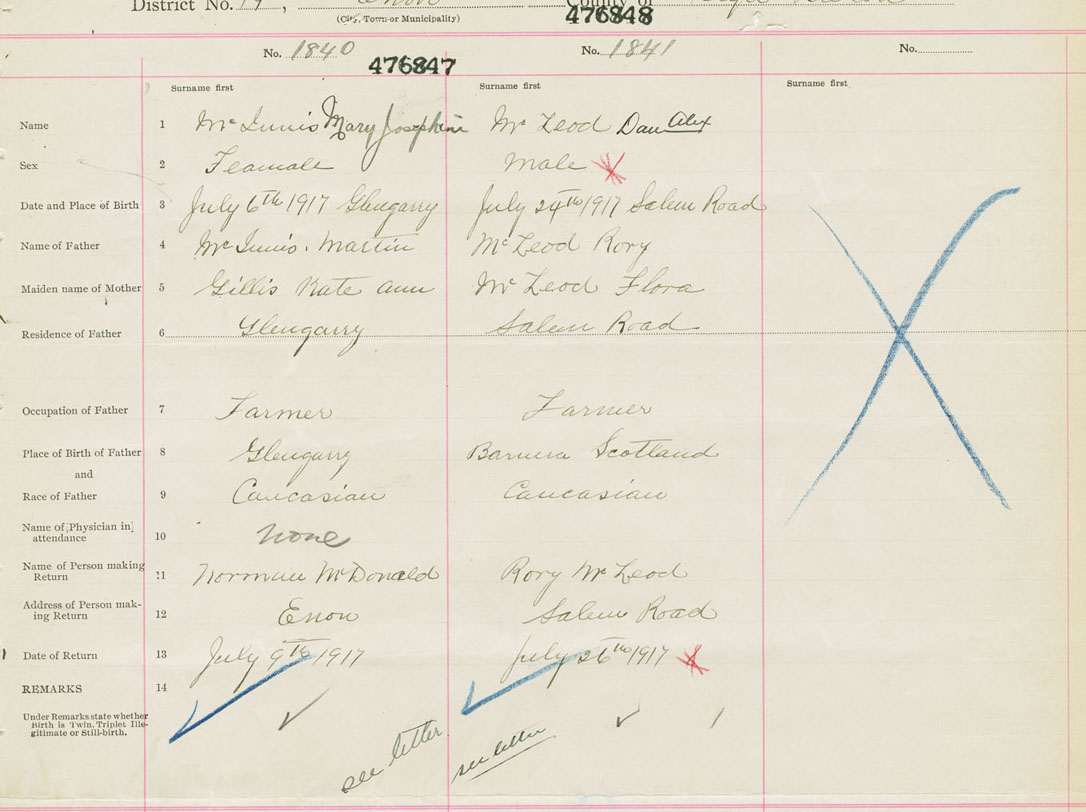 District No. 19, Enon County of
(City, Town or Municipality)
476848
No. 1840 No. 1841 No.
476847
Surname first Surname first Surname first
Name 1 McInnis Mary Josephine McLeod Dan Alex
Sex 2 Feamale Male
Date and Place of Birth 3 July 6th 1917 Glengarry July 24th 1917 Salem Road
Name of Father 4 McInnis. Martin McLeod Rory
Maiden name of Mother 5 Gillis Kate Ann McLeod Flora
Residence of Father 6 Glengarry Salem Road
Occupation of Father 7 Farmer Farmer
Place of Birth of Father 8 Glengarry Scotland
and
Race of Father 9 Caucasian Caucasian
Name of Physician in
attendance 10 None
Name of Person making
Return 11 Norman McDonald Rory McLeod
Address of Person mak-
ing Return 12 Enon Salem Road
Date of Return 13 July 9th 1917 July 26th 1917
REMARKS 14
Under Remarks state whether
Birth is Twin, Triplet Ille-
gitimate or Still-birth.
see letter see letter